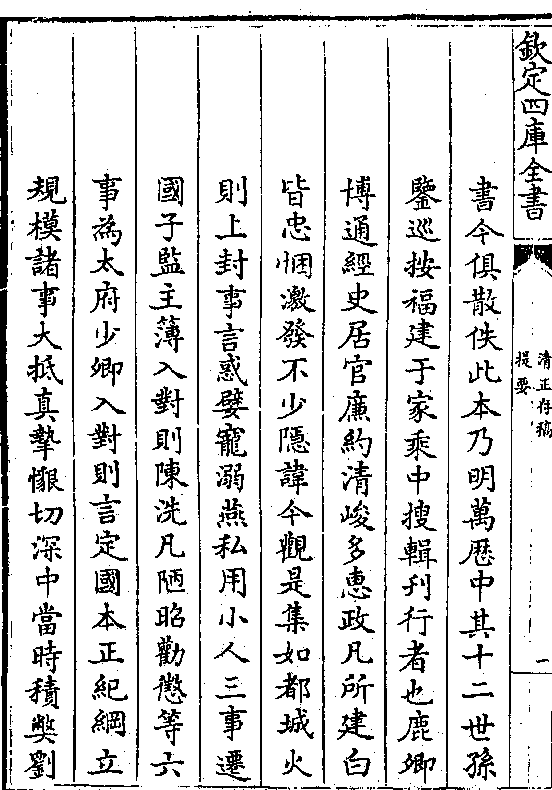 欽定四庫全書
清正存稿
提要
一
書今俱散佚此本乃明萬歴中其十二世孫
鑒巡按福建于家乘中搜輯刊行者也鹿卿
博通經史居官廉約清峻多惠政凡所建白
皆忠悃激發不少隱諱今觀是集如都城火
則上封事言惑嬖寵溺燕私用小人三事遷
國子監主簿入對則陳洗凡陋昭勸懲等六
事為太府少卿入對則言定國本正紀綱立
規模諸事大抵真摯懇切深中當時積弊劉